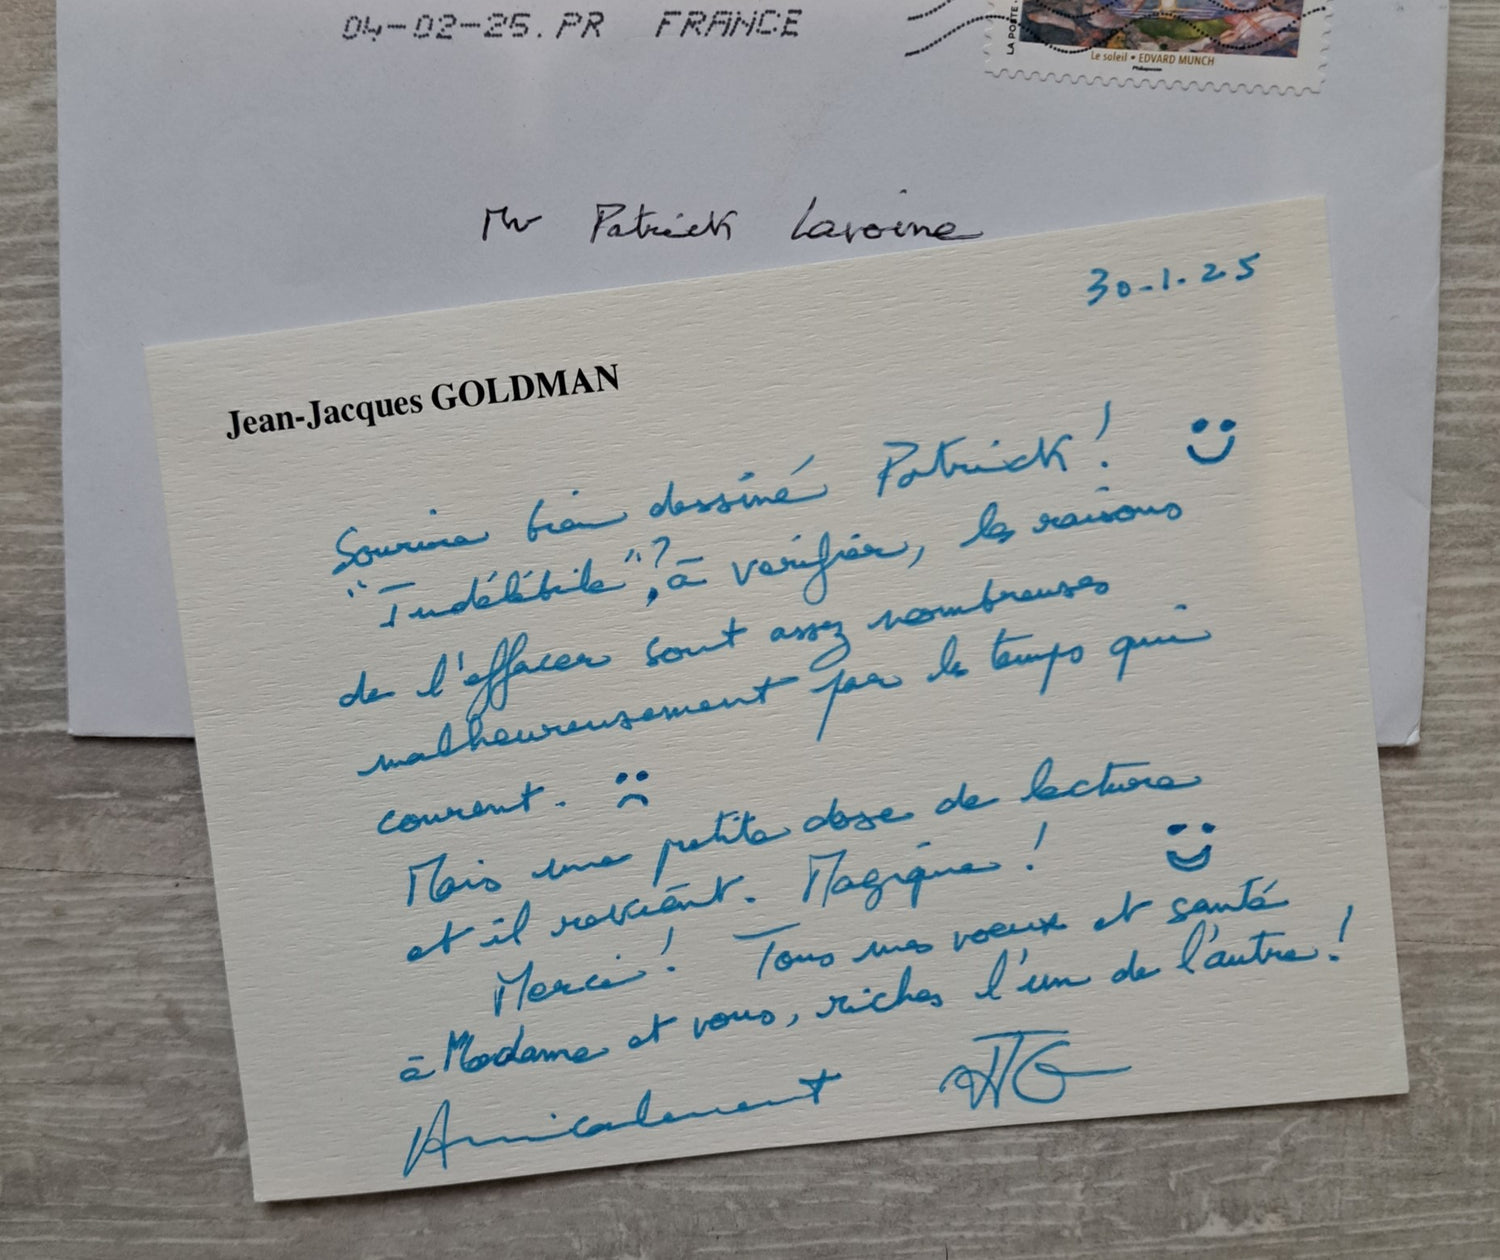 04-02-25. PR FRANCE
LA POSTE
Le soleil • EDVARD MUNCH
Philaposte
Mr Patrick Lavoine
30-1-25
Jean-Jacques GOLDMAN
Sourire bien dessiné Patrick !
"Indélébile"?, à vérifier, les raisons
de l'effacer sont assez nombreuses
malheureusement par les temps qui
courent.
Mais une petite dose de lecture
et il revient. Magique !
Merci ! Tous mes voeux et santé
à Madame et vous, riches l'un de l'autre !
Amicalement JJG